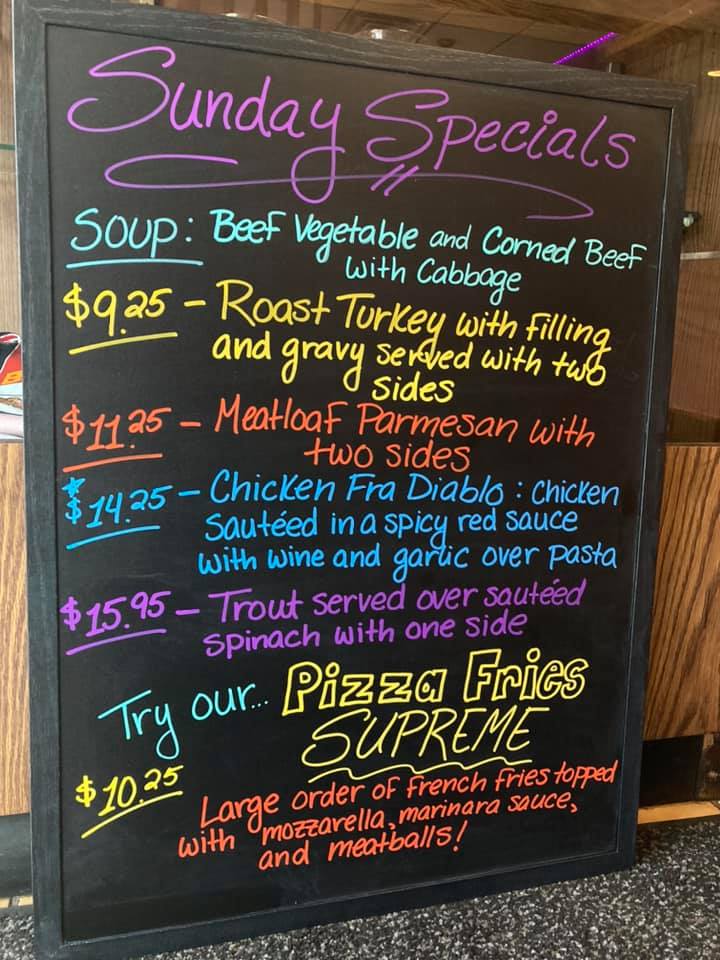 Sunday Specials
Soup: Beef Vegetable and Corned Beef
with Cabbage
$9.25 - Roast Turkey with filling
and gravy served with two
sides
$11.25 - Meatloaf Parmesan with
two sides
$14.25 - Chicken Fra Diablo: Chicken
Sautéed in a spicy red sauce
with wine and garlic over pasta
$15.95 - Trout served over sautéed
spinach with one side
Try our... Pizza Fries
SUPREME
$10.25 Large order of french fries topped
with mozzarella, marinara sauce,
and meatballs!